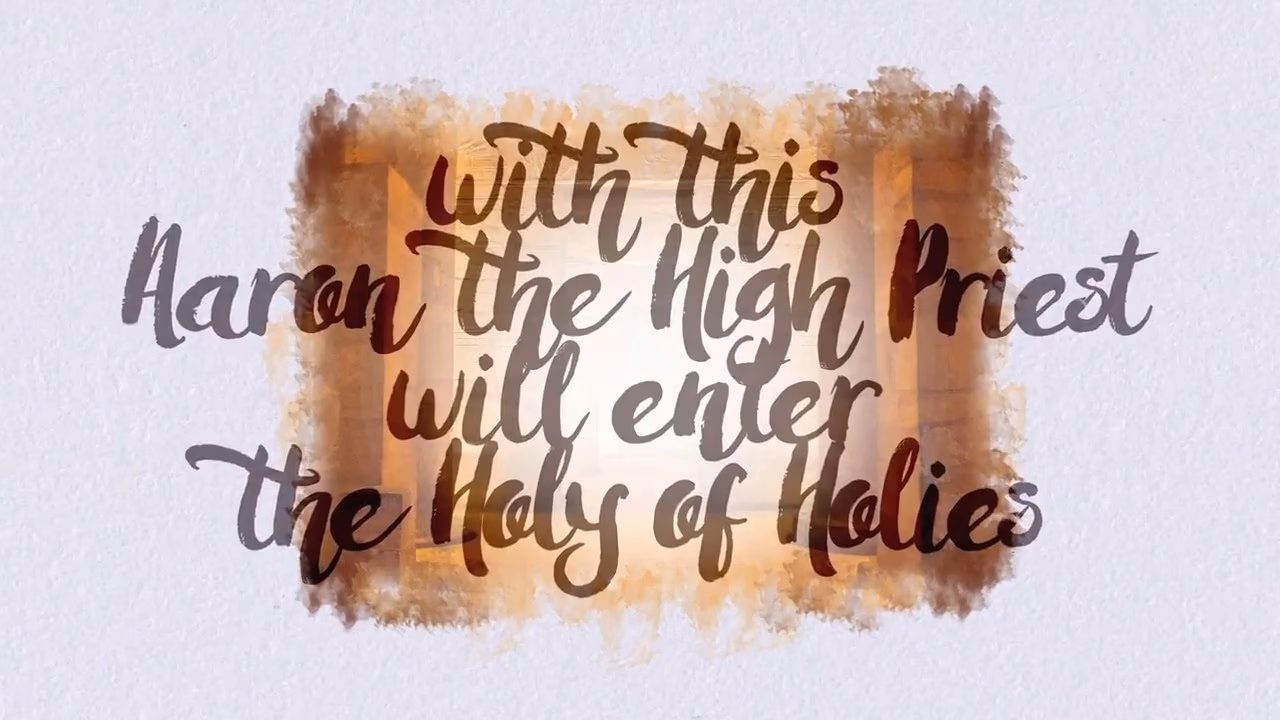 with this
Aaron the High Priest
will enter
the Holy of Holies